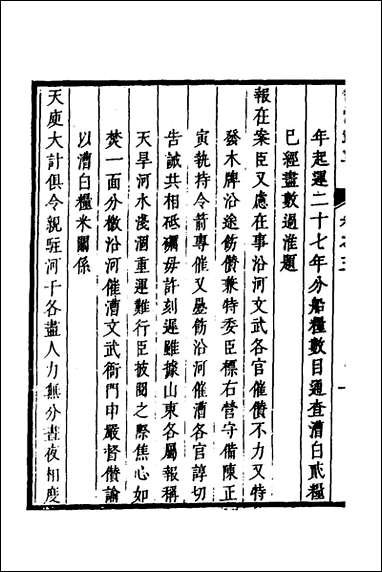 年起運二十七年分船糧數目通查漕白貳糧
已經盡數過淮題
報在案臣又慮在事沿河文武各官催儹不力又特
發木牌沿途飭儹兼特委臣標右營守備陳正
寅執持令箭專催又屢飭沿河催漕各官諄切
告誡共相砥礪毋許刻遲雖據山東各屬報稱
天旱河水淺涸重運難行臣披閱之際焦心如
焚一面分檄沿河催漕文武衙門申嚴督儹諭
以漕白糧米關係
天庾大計俱令親駐河干各盡人力無分晝夜相度